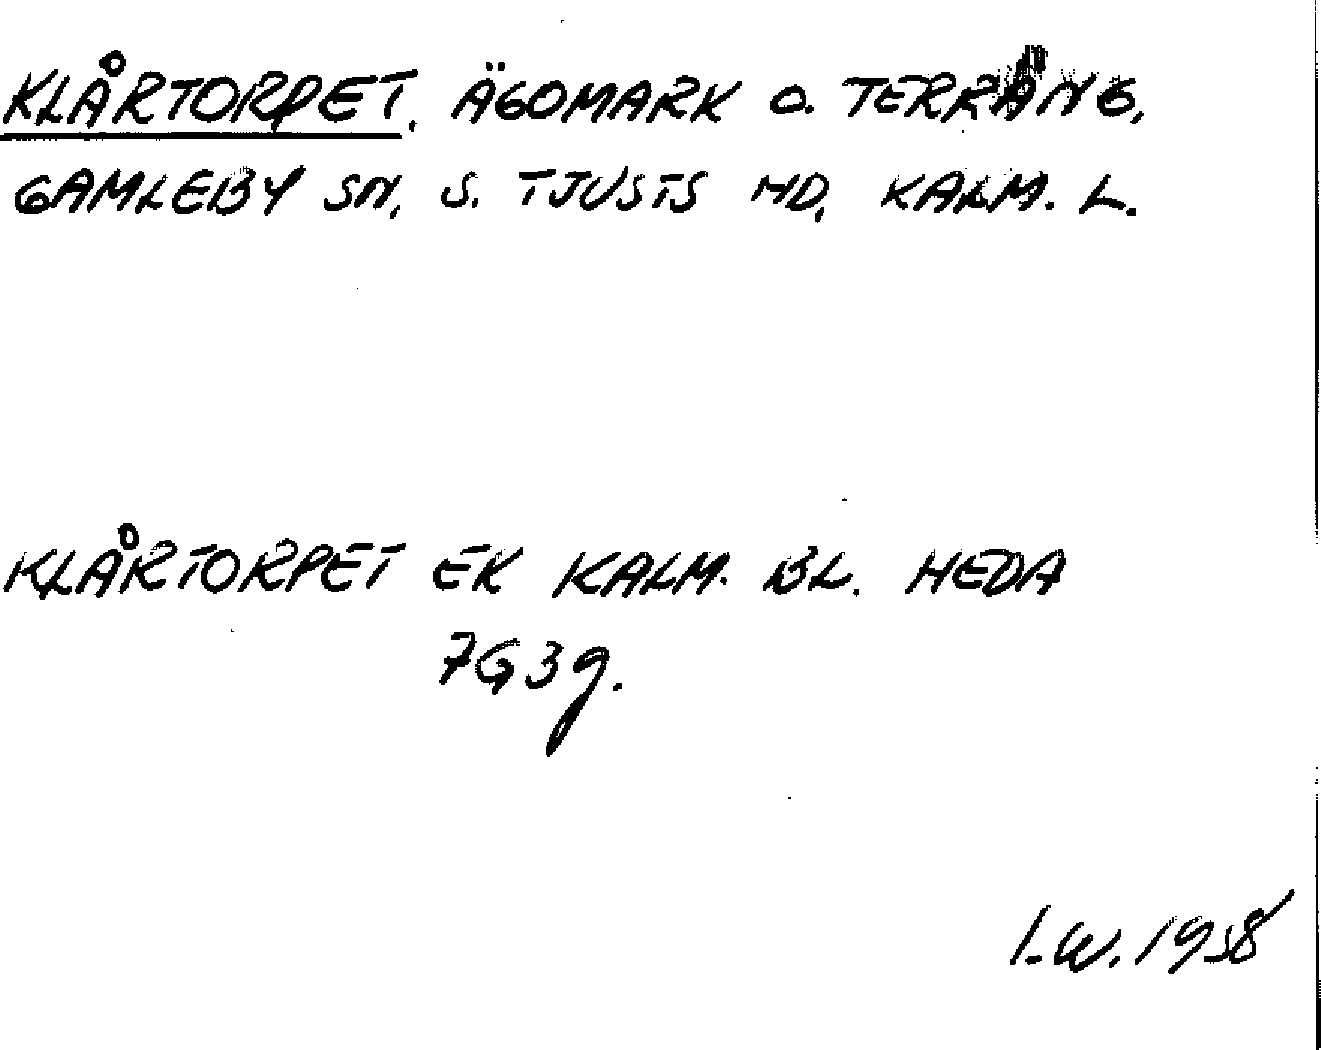 KLÅRTORPET, ÄGOMARK O. TERRÄNG,
GAMLEBY SN, S. TJUSTS HD, KALM. L.
KLÅRTORPET EK KALM. BL. HEDA
7G3g.
I.W. 1958